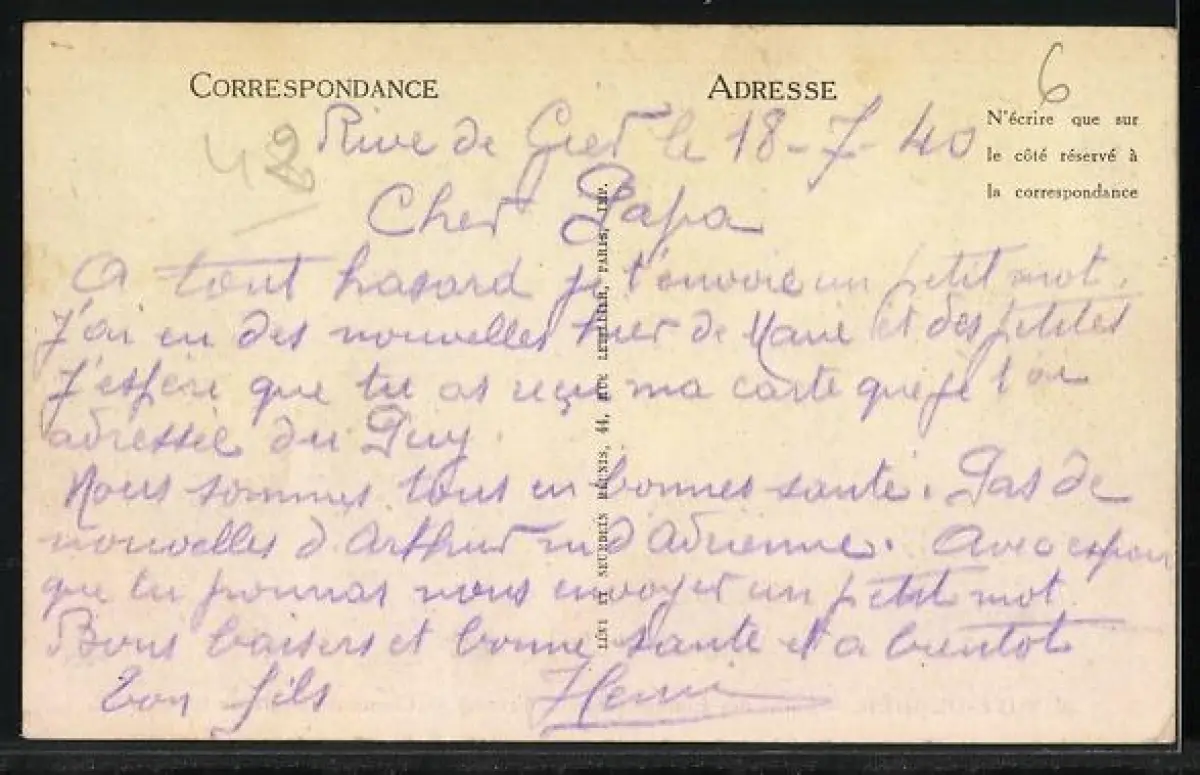 CORRESPONDANCE
ADRESSE
6
N'écrire que sur
le côté réservé à
la correspondance
42
Rive de Gier le 18-7-40
Cher Papa
A tout hasard je t'envoie un petit mot.
J'ai eu des nouvelles hier de Marie et des petites
J'espère que tu as reçu ma carte que je t'ai
adressée du Puy.
Nous sommes tous en bonnes santé. Pas de
nouvelles d'Arthur ni d'Adrienne. Avec espoir
que tu pourras nous envoyer un petit mot
Bons baisers et bonne santé et a bientot
Ton fils Henri
LEVY ET NEURDEIN REUNIS, 44, RUE LETELLIER, PARIS, IMP.